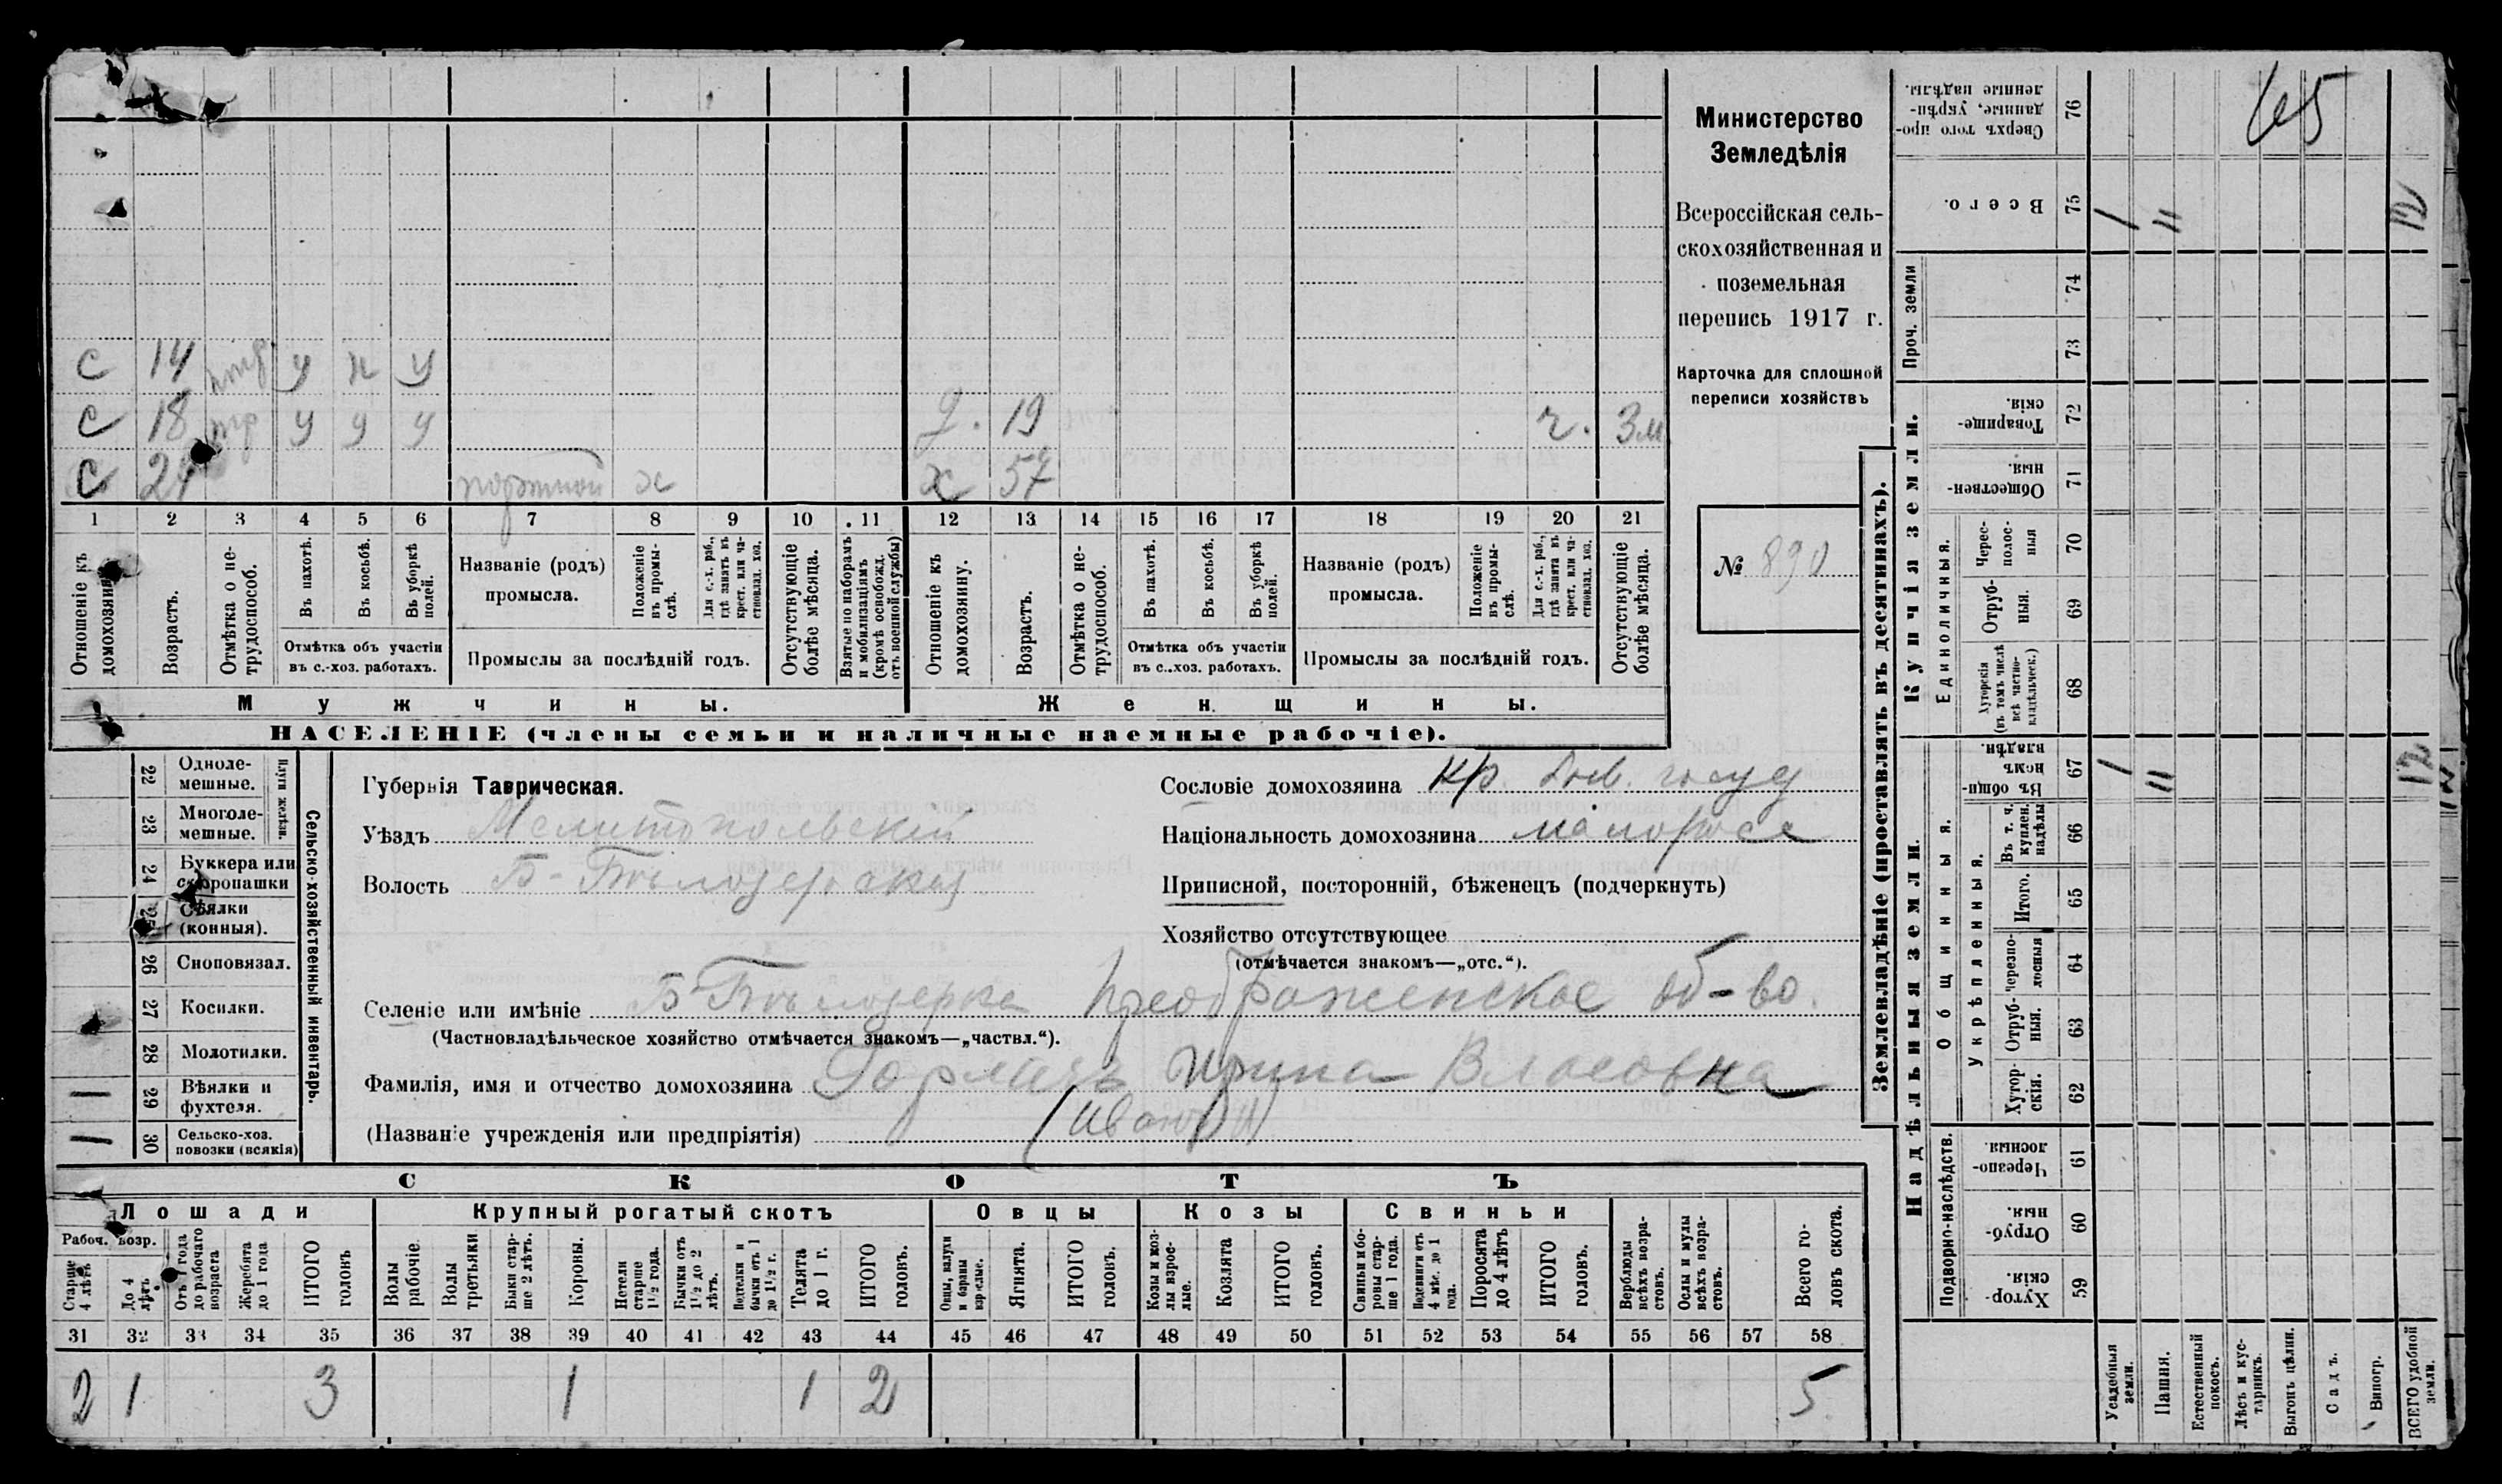 65
Министерство
Земледѣлія
Всероссійская сель-
скохозяйственная и
поземельная
перепись 1917 г.
Карточка для сплошной
переписи хозяйствъ
№ 890
С 14 у н у
С 18 у у у
д. 19 3м
С
портной х
х 57
1 2 3 4 5 6 7 8 9 10 11 12 13 14 15 16 17 18 19 20 21
Отношеніе къ домохозяину.
Возрастъ.
Отмѣтка о не-трудоспособ.
Въ пахотѣ.
Въ косьбѣ.
Въ уборкѣ полей.
Отмѣтка объ участіи
въ с.-хоз. работахъ.
Названіе (родъ)
промысла.
Положеніе въ промы-слѣ.
Для с.-х. раб., гдѣ занятъ въ крест. или ча-стновлад. хоз.
Промыслы за послѣдній годъ.
Отсутствующіе болѣе мѣсяца.
Взятые по наборамъ и мобилизаціямъ (кромѣ освобожд. отъ военной службы)
Отношеніе къ домохозяину.
Возрастъ.
Отмѣтка о не-трудоспособ.
Въ пахотѣ.
Въ косьбѣ.
Въ уборкѣ полей.
Отмѣтка объ участіи
въ с.-хоз. работахъ.
Названіе (родъ)
промысла.
Положеніе въ промы-слѣ.
Для с.-х. раб., гдѣ занята въ крест. или ча-стновлад. хоз.
Промыслы за послѣдній годъ.
Отсутствующіе болѣе мѣсяца.
Мужчины.
Женщины.
НАСЕЛЕНІЕ (члены семьи и наличные наемные рабочіе).
22 Одноле-мешные.
23 Многоле-мешные.
Плуги желѣзн.
24 Буккера или скоропашки
25 Сѣялки (конныя).
26 Сноповязал.
27 Косилки.
28 Молотилки.
29 Вѣялки и фухтеля. 1
30 Сельско-хоз. повозки (всякія) 1
Сельско-хозяйственный инвентарь.
Губернія Таврическая.
Уѣздъ Мелитопольскій
Волость Б-Бѣлозерская
Сословіе домохозяина кр.
Національность домохозяина малороссъ
Приписной, посторонній, бѣженецъ (подчеркнуть)
Хозяйство отсутствующее
(отмѣчается знакомъ—„отс.“).
Селеніе или имѣніе Б-Бѣлозерка Преображенское об-во.
(Частновладѣльческое хозяйство отмѣчается знакомъ—„частвл.“).
Фамилія, имя и отчество домохозяина Горлачъ Ирина Власовна
(Названіе учрежденія или предпріятія)
СКОТЪ
Лошади
Крупный рогатый скотъ
Овцы
Козы
Свиньи
Рабоч. возр.
Старше 4 лѣтъ
До 4 лѣтъ
Отъ 1 года до рабочаго возраста
Жеребята до 1 года.
ИТОГО головъ
Волы рабочіе.
Волы третьяки
Быки стар-ше 2 лѣтъ.
Коровы.
Нетели старше 1½ года.
Бычки отъ 1½ до 2 лѣтъ.
Подтелки и бычки отъ 1 до 1½ г.
Телята до 1 г.
ИТОГО головъ.
Овцы, валухи и бараны взрослые.
Ягнята.
ИТОГО головъ.
Козы и коз-лы взрос-лые.
Козлята
ИТОГО головъ.
Свиньи и бо-ровы стар-ше 1 года.
Подсвинки отъ 4 мѣс. до 1 года.
Поросята до 4 лѣтъ
ИТОГО головъ.
Верблюды всѣхъ возра-стовъ.
Ослы и мулы всѣхъ возра-стовъ.
Всего го-ловъ скота.
31 32 33 34 35 36 37 38 39 40 41 42 43 44 45 46 47 48 49 50 51 52 53 54 55 56 57 58
2 1 3 1 1 2 5
Землевладѣніе (проставлять въ десятинахъ).
Сверхъ того про-данные, укрѣп-ленные надѣлы. 76
Всего. 75 1 11 12
Проч. земли 74 73
Купчія земли.
Товарище-скія. 72
Обществен-ныя. 71
Единоличныя.
Черес-полос-ныя 70
Отруб-ныя. 69
Хуторскія (въ томъ числѣ всѣ частно-владѣльческ.) 68
Надѣльныя земли.
Общинныя.
Въ общин-номъ владѣн. 67 1 11 12
Укрѣпленныя.
Въ т. ч. куплен. надѣлы 66
Итого. 65
Черезпо-лосныя 64
Отруб-ныя. 63
Хутор-скія. 62
Подворно-наслѣдств.
Черезпо-лосныя. 61
Отруб-ныя. 60
Хутор-скія. 59
Усадебныя земли.
Пашня.
Естественный покосъ.
Лѣсъ и кус-тарникъ.
Выгонъ цѣлин.
Садъ.
Виногр.
ВСЕГО удобной земли.